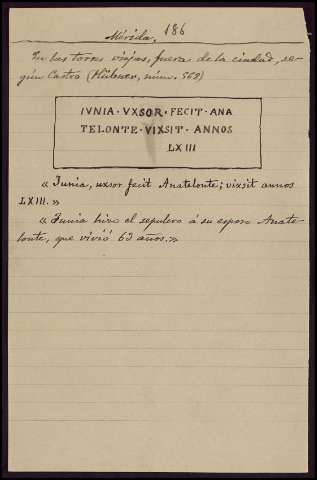 Mérida. 186
En las torres viejas, fuera de la ciudad, se-
gún Castro (Hübner, núm. 562)
IVNIA · VXSOR · FECIT · ANA
TELONTE · VIXSIT · ANNOS
LXIII
« Junia, uxsor fecit Anatelonte; vixsit annos
LXIII. »
« Junia hizo el sepulcro á su esposo Anate-
lonte, que vivió 63 años. »